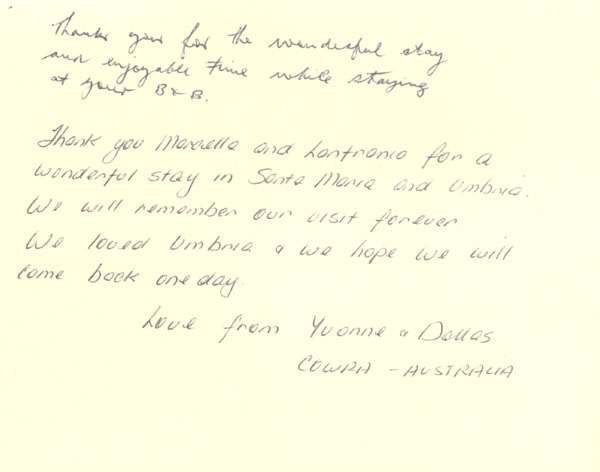 Thank you for the wonderful stay
and enjoyable time while staying
at your B & B.
Thank you Marcella and Lanfranco for a
wonderful stay in Santa Maria and Umbria.
We will remember our visit forever
We loved Umbria & we hope we will
come back one day.
Love from Yvonne & Dallas
COWRA - AUSTRALIA